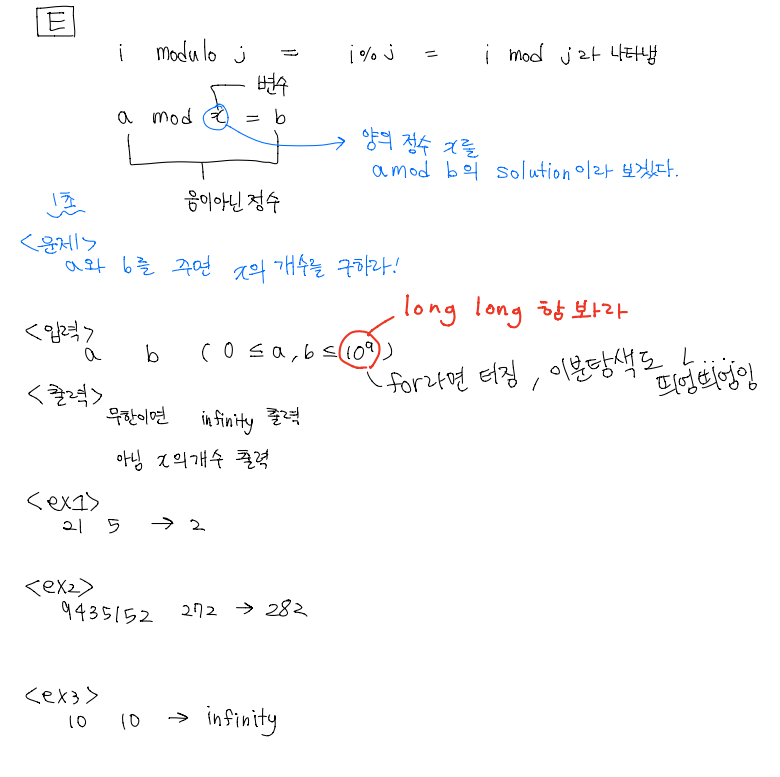 E
i modulo j = i%j = i mod j라 나타냄
변수
a mod x = b
양의 정수 x를
a mod b의 solution이라 보겠다.
음이아닌 정수
1초
<문제>
a와 b를 주면 x의 개수를 구하라!
long long 함 봐라
<입력>
a b ( 0 ≤ a, b ≤ 10⁹)
for라면 터짐, 이분탐색도
띄엉띄엉임
<출력>
무한이면 infinity 출력
아님 x의개수 출력
<ex1>
21 5 → 2
<ex2>
9435152 272 → 282
<ex3>
10 10 → infinity